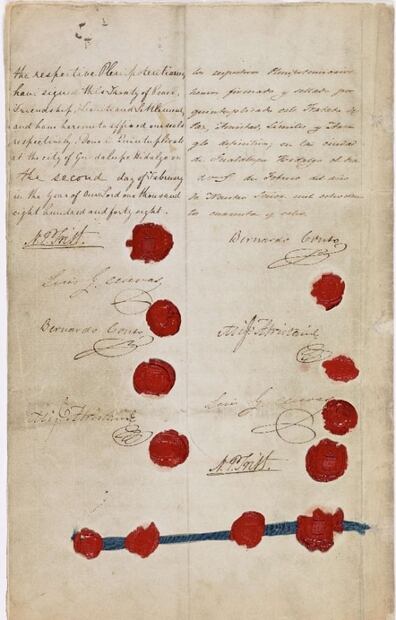 the respective Plenipotentiaries
have signed this Treaty of Peace,
Friendship, Limits and Settlement,
and have hereunto affixed our seals
respectively. Done in Quintuplicate
at the city of Guadalupe Hidalgo on
the second day of February
in the year of our Lord one thousand
eight hundred and forty eight.
N. P. Trist.
Luis G. Cuevas
Bernardo Couto
Migl Atristain
los respectivos Plenipotenciarios
hemos firmado y sellado por
quintuplicado este Tratado de
Paz, Amistad, Límites y Arre
glo definitivo, en la ciudad
de Guadalupe Hidalgo el dia
dos de Febrero del año
de Nuestro Señor mil ochocien
tos cuarenta y ocho.
Bernardo Couto
Migl Atristain
Luis G. Cuevas
N. P. Trist.